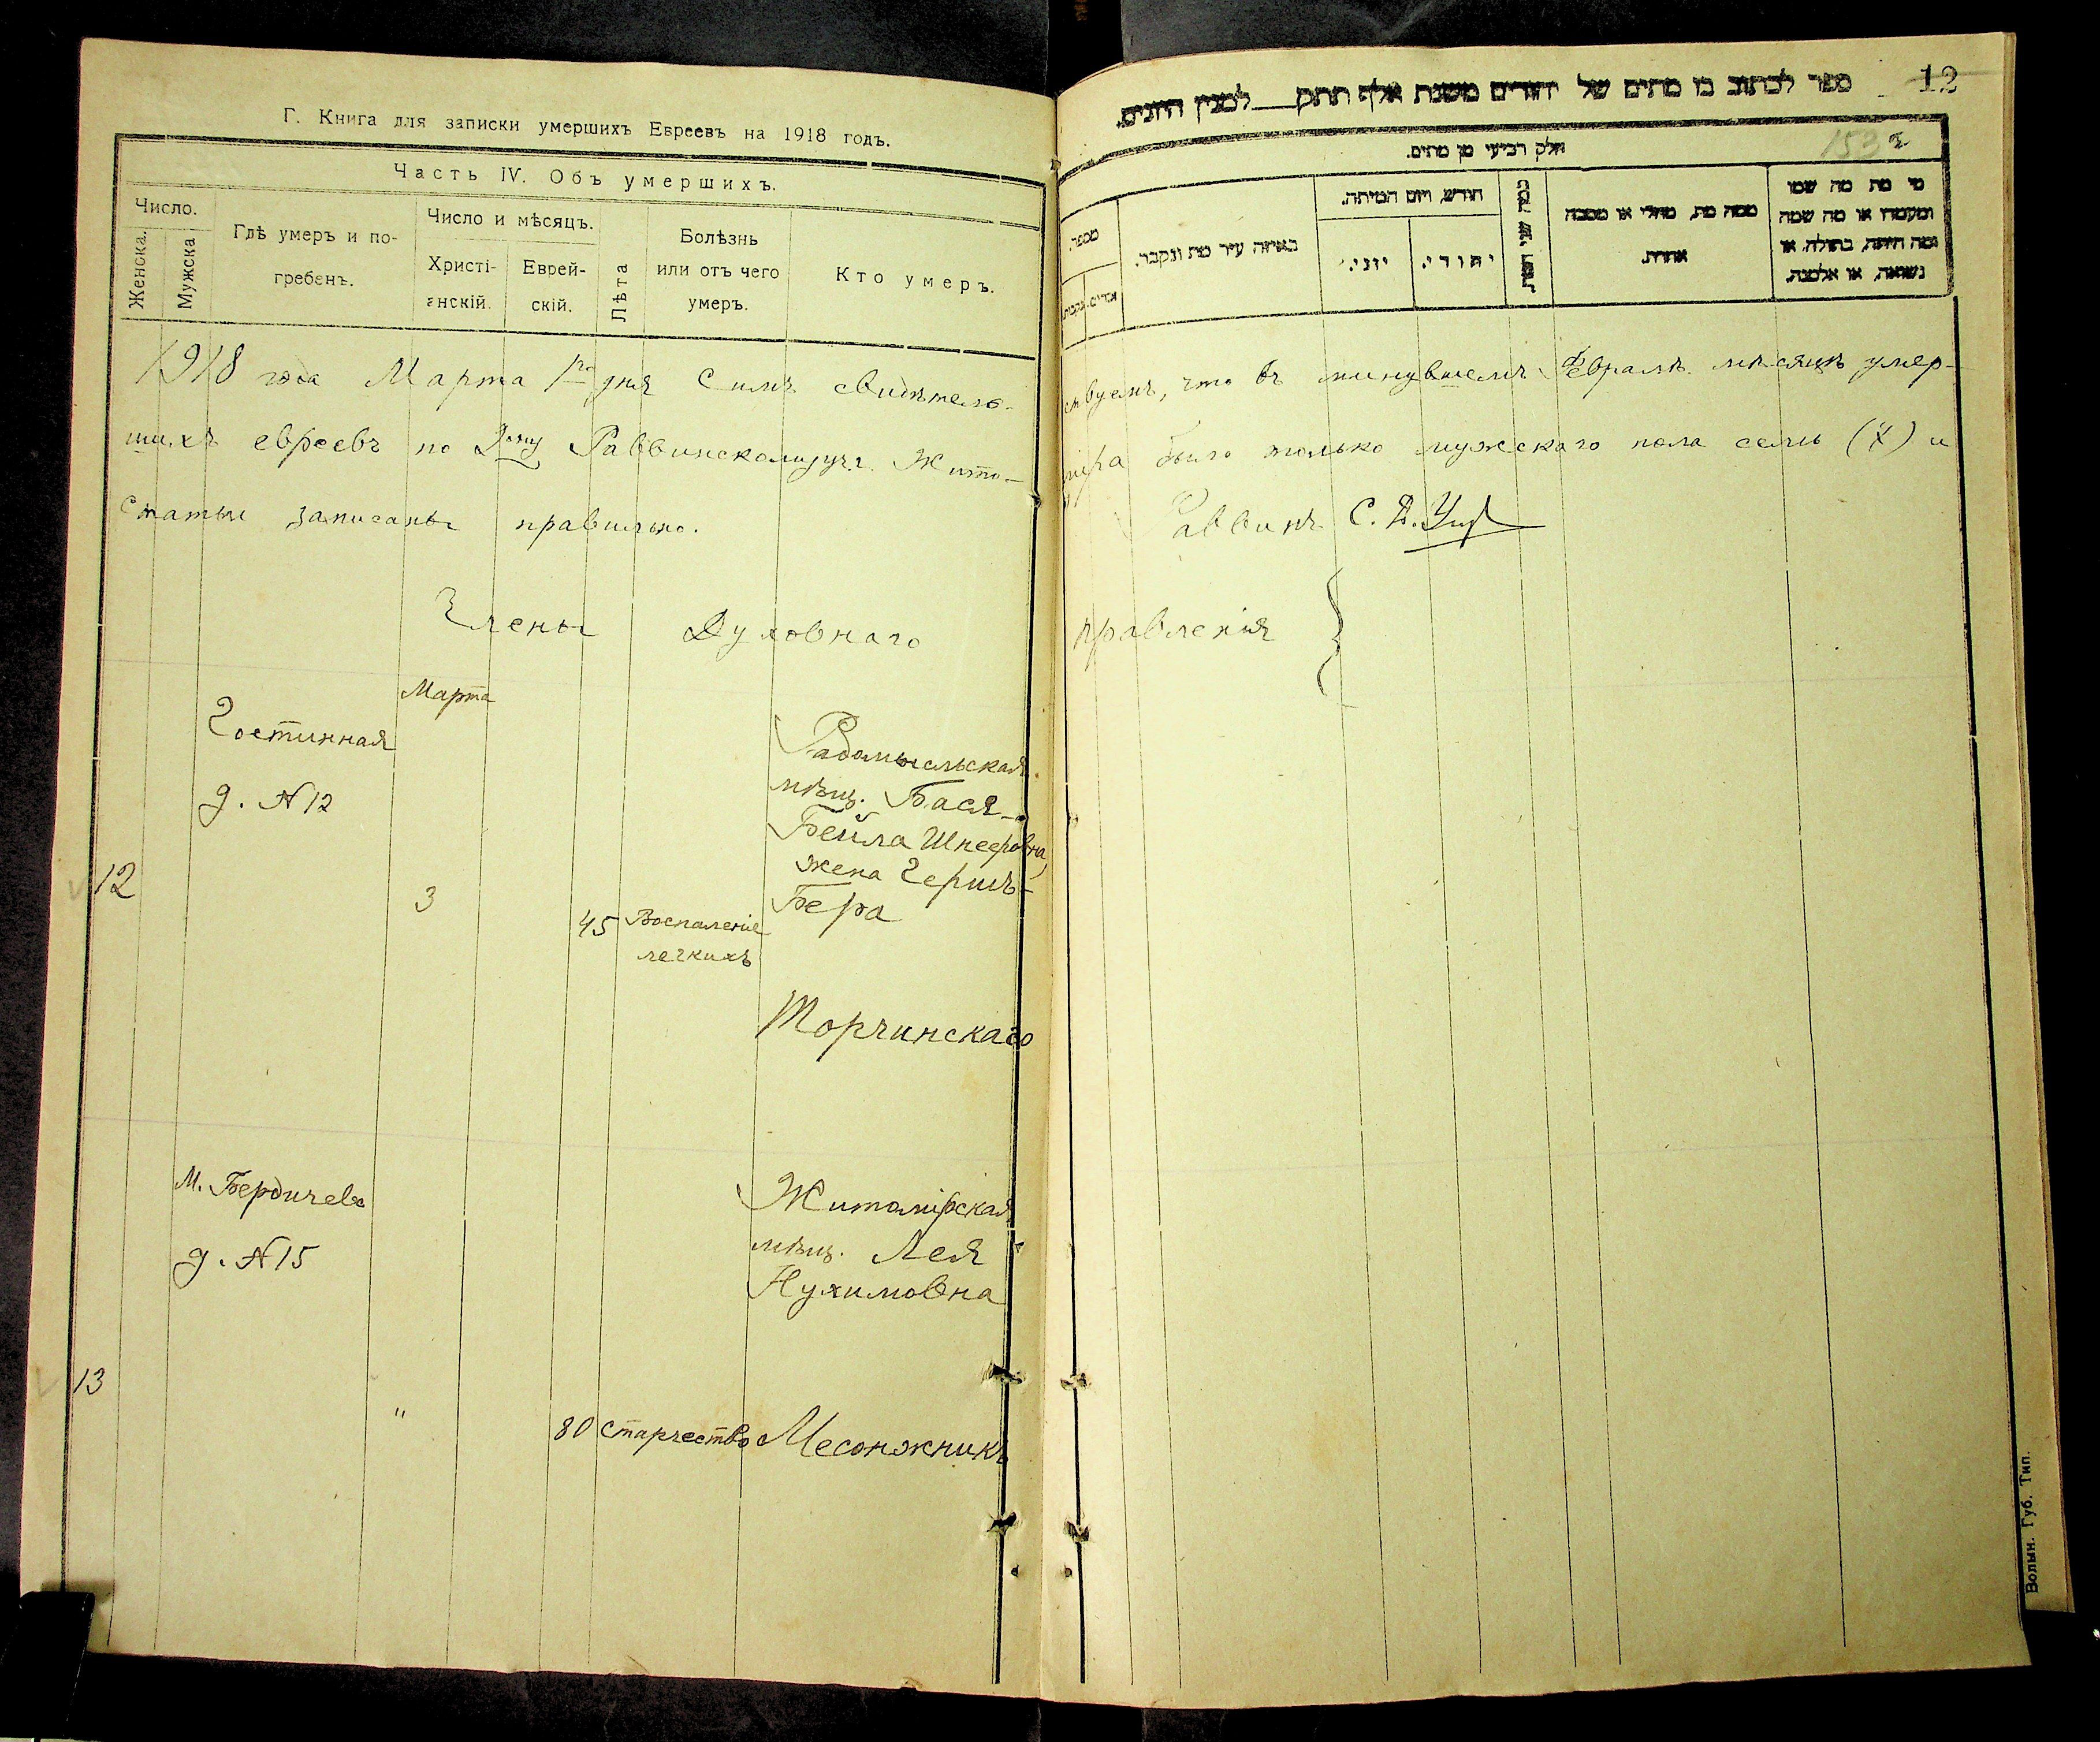 Г. Книга для записки умершихъ Евреевъ на 1918 годъ.
Часть IV. Объ умершихъ.
Число.
Женска.
Мужска
Гдѣ умеръ и по-
гребенъ.
Число и мѣсяцъ.
Христі-
анскій.
Еврей-
скій.
Лѣта
Болѣзнь
или отъ чего
умеръ.
Кто умеръ.
1918 года Марта 1го дня Симъ свидѣтель-
шихъ евреевъ по 2му Раввинскому уч. г. Жито-
статьи записаны правильно.
Члены Духовнаго
Марта
Гостинная
д. № 12
12
3
45
Воспаленіе
легкихъ
Радомысльская
мѣщ. Бася-
Бейла Шнееровна,
жена Гершъ-
Бера
Торчинскаго
М. Бердичевс
д. № 15
13
"
80
Старчество
Житомірская
мѣщ. Лея
Нухимовна
Месонжникъ
ספר לכתוב בו מתים של יהודים משנת אלף תתק___למנין היונים.
12
153
חלק רביעי מן מתים.
מספר.
נקבות
זכרים
באיזה עיר מת ונקבר.
חודש ויום המיתה.
יוני.
יהודי.
ממה מת, מחלי או מסבה
אחרת.
מי מת מה שמו
ומעמדו או מה שמה
ומה היתה, בתולה, או
נשואה, או אלמנה.
ствуемъ, что въ минувшемъ Февралѣ мѣсяцѣ умер-
міра было только мужскаго пола семь (7) и
Раввинъ С. А.
правленія
Волын. Губ. Тип.